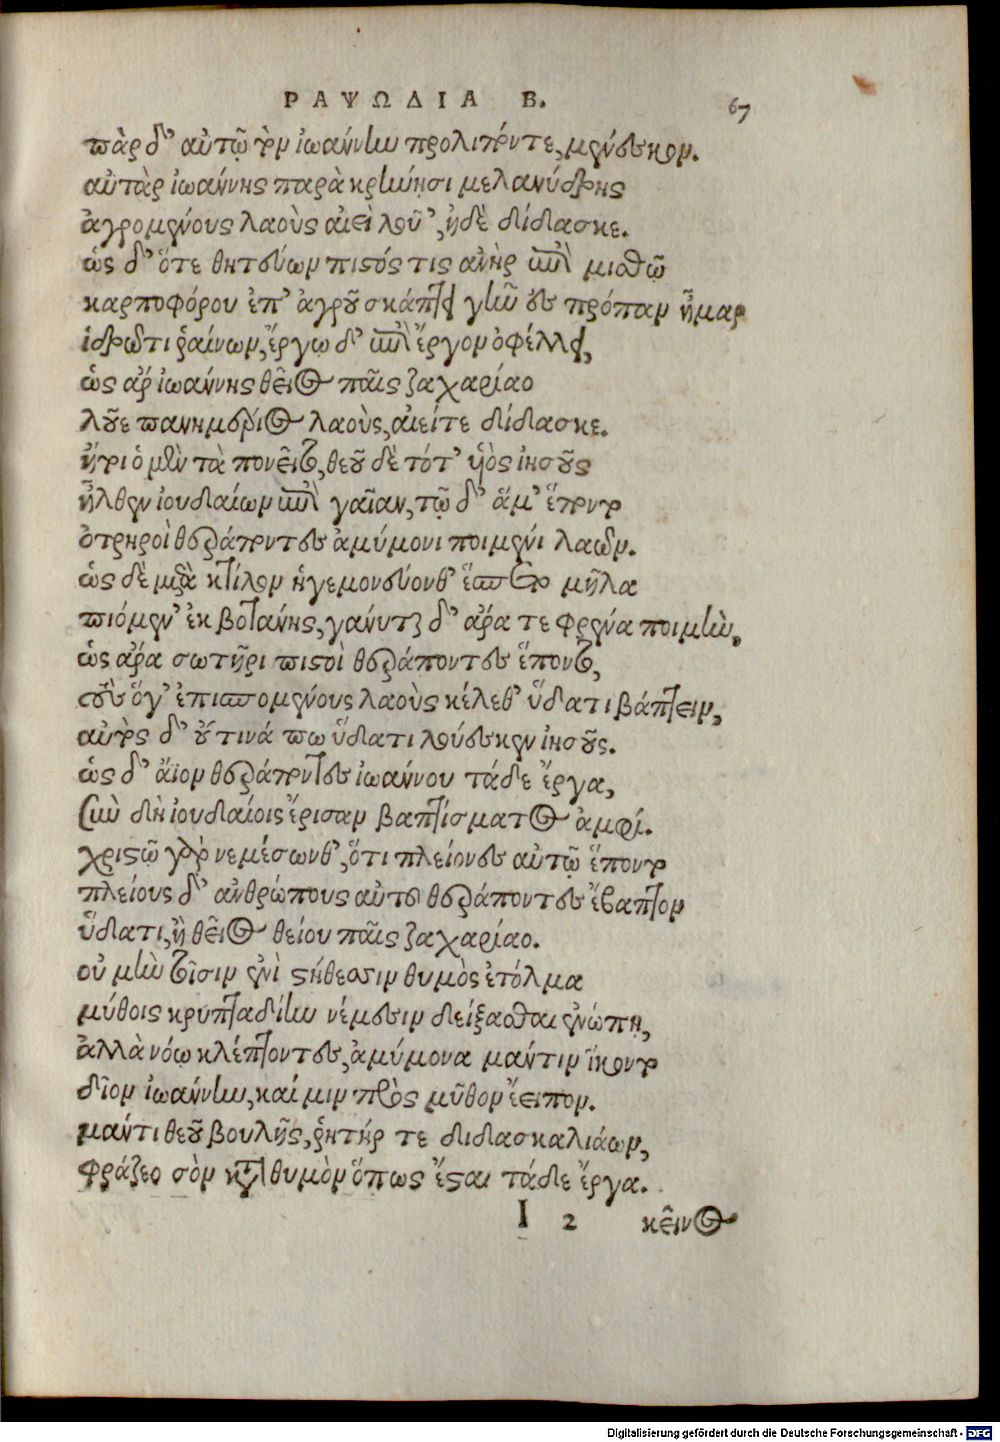 ΡΑΨΩΔΙΑ Β. 67
πὰρ δ' αὐτῷ τὸν ἰωάννην προλιπόντε, μένεσκον.
αὐτὰρ ἰωάννης παρὰ κρήνῃσι μελανύδροις
ἀγρομένους λαοὺς αἰεὶ λοῦ', ἠδὲ δίδασκε.
ὡς δ' ὅτε θητεύων πιστός τις ἀνὴρ ἐπὶ μισθῷ
καρποφόρου ἐπ' ἀγροῦ σκάπτει γῆν ἐς πρόπαν ἦμαρ
ἱδρῶτι ῥαίνων, ἔργῳ δ' ἐπὶ ἔργον ὀφέλλει,
ὡς ἄρ ἰωάννης θεῖος παῖς ζαχαρίαο
λοῦε πανημέριος λαοὺς, αἰεί τε δίδασκε.
ἤτοι ὁ μὲν τὰ πονεῖτο, θεοῦ δὲ τότ' ἠὸς ἰησοῦς
ἦλθεν ἰουδαίων ἐπὶ γαῖαν, τῷ δ' ἅμ' ἕποντο
ὀτρηροὶ θεράποντες ἀμύμονι ποιμένι λαῶν.
ὡς δὲ μετὰ κτίλον ἡγεμονεύονθ' ἕσπετο μῆλα
πιόμεν' ἐκ βοτάνης, γάνυται δ' ἄρα τε φρένα ποιμὴν,
ὡς ἄρα σωτῆρι πιστοὶ θεράποντες ἕποντο,
τοὺς ὅγ' ἐπισπομένους λαοὺς κέλεθ' ὕδατι βάπτειν,
αὐτὸς δ' οὔ τινά πω ὕδατι λούεσκεν ἰησοῦς.
ὡς δ' ἄϊον θεράποντες ἰωάννου τάδε ἔργα,
σὺν δὴ ἰουδαίοις ἔρισαν βαπτίσματος ἀμφί.
χριστῷ γὰρ νεμέσωνθ', ὅτι πλείονες αὐτῷ ἕποντο
πλείους δ' ἀνθρώπους αὐτοῦ θεράποντες ἔβαπτον
ὕδατι, ἢ θεῖος θείου παῖς ζαχαρίαο.
οὐ μὴν τοῖσιν ἐνὶ στήθεσσιν θυμὸς ἐτόλμα
μύθοις κρυπταδίην νέμεσιν δείξασθαι ἐνώπῃ,
ἀλλὰ νόῳ κλέπτοντες, ἀμύμονα μάντιν ἵκοντο
δῖον ἰωάννην, καί μιν πρὸς μῦθον ἔειπον.
μάντι θεοῦ βουλῆς, ῥητήρ τε διδασκαλιάων,
φράζεο σὸν κατὰ θυμὸν ὅπως ἔσται τάδε ἔργα.
I 2 κεῖνος
Digitalisierung gefördert durch die Deutsche Forschungsgemeinschaft - DFG